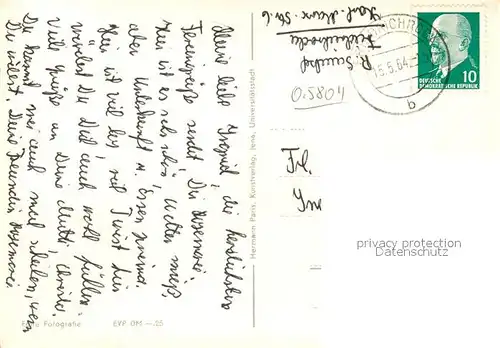 Meine liebe Ingrid, die herzlichsten
Feriengrüße sendet Dir Rosemarei.
Hier ist es sehr schön, Wetter mies,
aber Unterkunft u. Essen prima.
Hier ist viel los, viel Twist hier
würdest Du Dich auch wohl fühlen.
Viele Grüße an Deine Mutti,
Du kannst mir auch mal schreiben, wenn
Du willst. Deine Freundin Rosemarei.
Foto Fotografie EVP DM -.25
Hermann Paris, Kunstverlag, Jena, Universitätsstadt
R.
Friedrichroda
Karl-Marx-Str. 6
0.5804
15.5.64
b
DEUTSCHE
DEMOKRATISCHE REPUBLIK
10
Frl.
privacy protection
Datenschutz